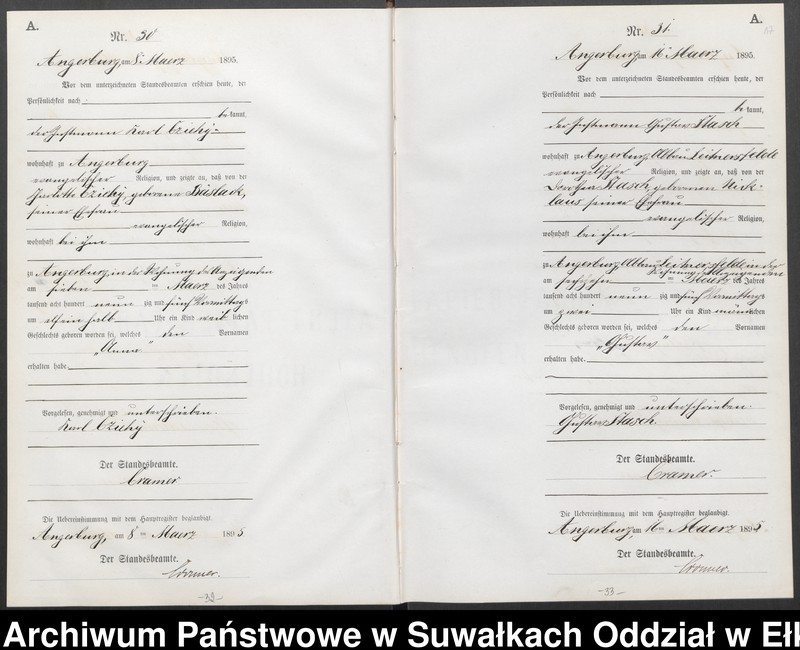 A.
Nr. 30
Angerburg am 8. Maerz 1895.
Vor dem unterzeichneten Standesbeamten erschien heute, der
Persönlichkeit nach
bekannt,
der Instmann Karl Czichy
wohnhaft zu Angerburg
evangelischer Religion, und zeigte an, daß von der
Czichy, geborene
seiner Ehefrau
evangelischer Religion,
wohnhaft bei ihm
zu Angerburg, in der Wohnung des Anzeigenden
am sieben ten Maerz des Jahres
tausend acht hundert neun zig und fünf Vormittags
um elf ein halb Uhr ein Kind weib lichen
Geschlechts geboren worden sei, welches den Vornamen
„Anna"
erhalten habe.
Vorgelesen, genehmigt und unterschrieben.
Karl Czichy
Der Standesbeamte.
Cramer
Die Uebereinstimmung mit dem Hauptregister beglaubigt.
Angerburg, am 8 ten Maerz 1895
Der Standesbeamte.
Cramer.
-32-
A.
Nr. 31.
Angerburg am 16. Maerz 1895.
Vor dem unterzeichneten Standesbeamten erschien heute, der
Persönlichkeit nach
bekannt,
der Instmann Gustav Stasch
wohnhaft zu Angerburg
evangelischer Religion, und zeigte an, daß von der
Stasch, geborenen Nick-
laus seiner Ehefrau
evangelischer Religion,
wohnhaft bei ihm
zu Angerburg in der
Wohnung des Anzeigenden
am sechzehn ten Maerz des Jahres
tausend acht hundert neun zig und fünf Vormittags
um zwei Uhr ein Kind männlichen
Geschlechts geboren worden sei, welches den Vornamen
„Gustav"
erhalten habe.
Vorgelesen, genehmigt und unterschrieben.
Gustav Stasch.
Der Standesbeamte.
Cramer.
Die Uebereinstimmung mit dem Hauptregister beglaubigt.
Angerburg, am 16 ten Maerz 1895
Der Standesbeamte.
Cramer.
-33-
Archiwum Państwowe w Suwałkach Oddział w Ełk